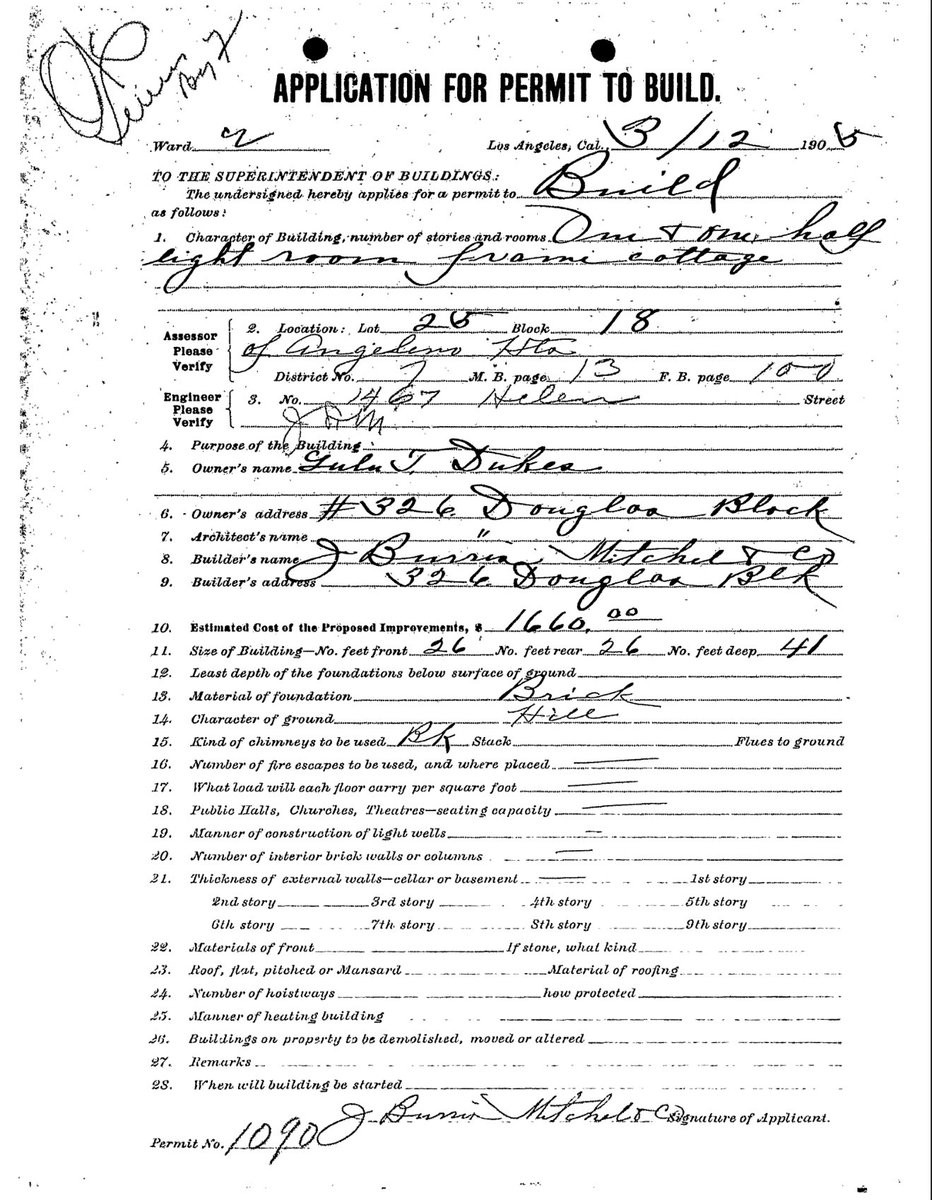 OK
APPLICATION FOR PERMIT TO BUILD.
Ward 2 Los Angeles, Cal., 3/12 1905
TO THE SUPERINTENDENT OF BUILDINGS:
The undersigned hereby applies for a permit to Build
as follows:
1. Character of Building, number of stories and rooms One & one half
eight room frame cottage
Assessor Please Verify
2. Location: Lot 25 Block 18
of Angelino Hts
District No. 7 M. B. page 13 F. B. page 100
Engineer Please Verify
3. No. 1467 Helen Street
4. Purpose of the Building
5. Owner's name Lulu T. Dukes
6. Owner's address # 326 Douglas Block
7. Architect's name "
8. Builder's name J Burris Mitchel & Co
9. Builder's address 326 Douglas Blk
10. Estimated Cost of the Proposed Improvements, $ 1660.00
11. Size of Building—No. feet front 26 No. feet rear 26 No. feet deep 41
12. Least depth of the foundations below surface of ground
13. Material of foundation Brick
14. Character of ground Hill
15. Kind of chimneys to be used Bk Stack Flues to ground
16. Number of fire escapes to be used, and where placed
17. What load will each floor carry per square foot
18. Public Halls, Churches, Theatres—seating capacity
19. Manner of construction of light wells
20. Number of interior brick walls or columns
21. Thickness of external walls—cellar or basement 1st story
2nd story 3rd story 4th story 5th story
6th story 7th story 8th story 9th story
22. Materials of front If stone, what kind
23. Roof, flat, pitched or Mansard Material of roofing
24. Number of hoistways how protected
25. Manner of heating building
26. Buildings on property to be demolished, moved or altered
27. Remarks
28. When will building be started
J Burris Mitchel & Co Signature of Applicant.
Permit No. 1090